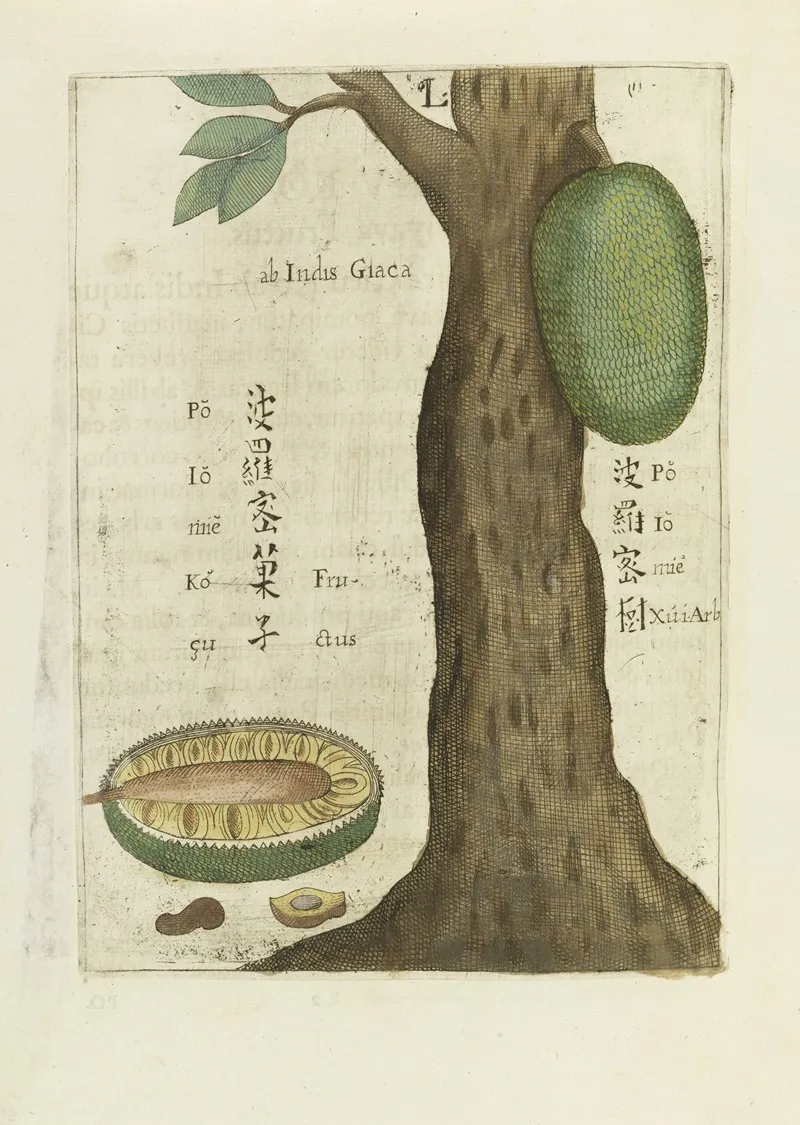 L
ab Indis Giaca
Pŏ
Iŏ
miĕ
Kŏ
çu
波羅密菓子
Fru-
ctus
波羅密樹
Pŏ
Iŏ
miĕ
Xúi Arb